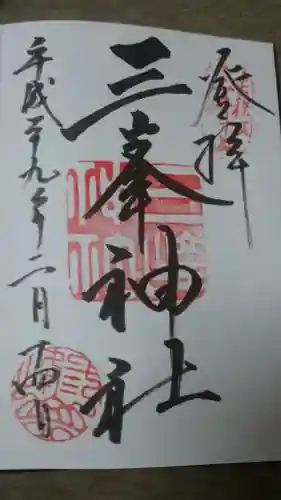 登拝
三峯神社
平成二十九年二月十四日